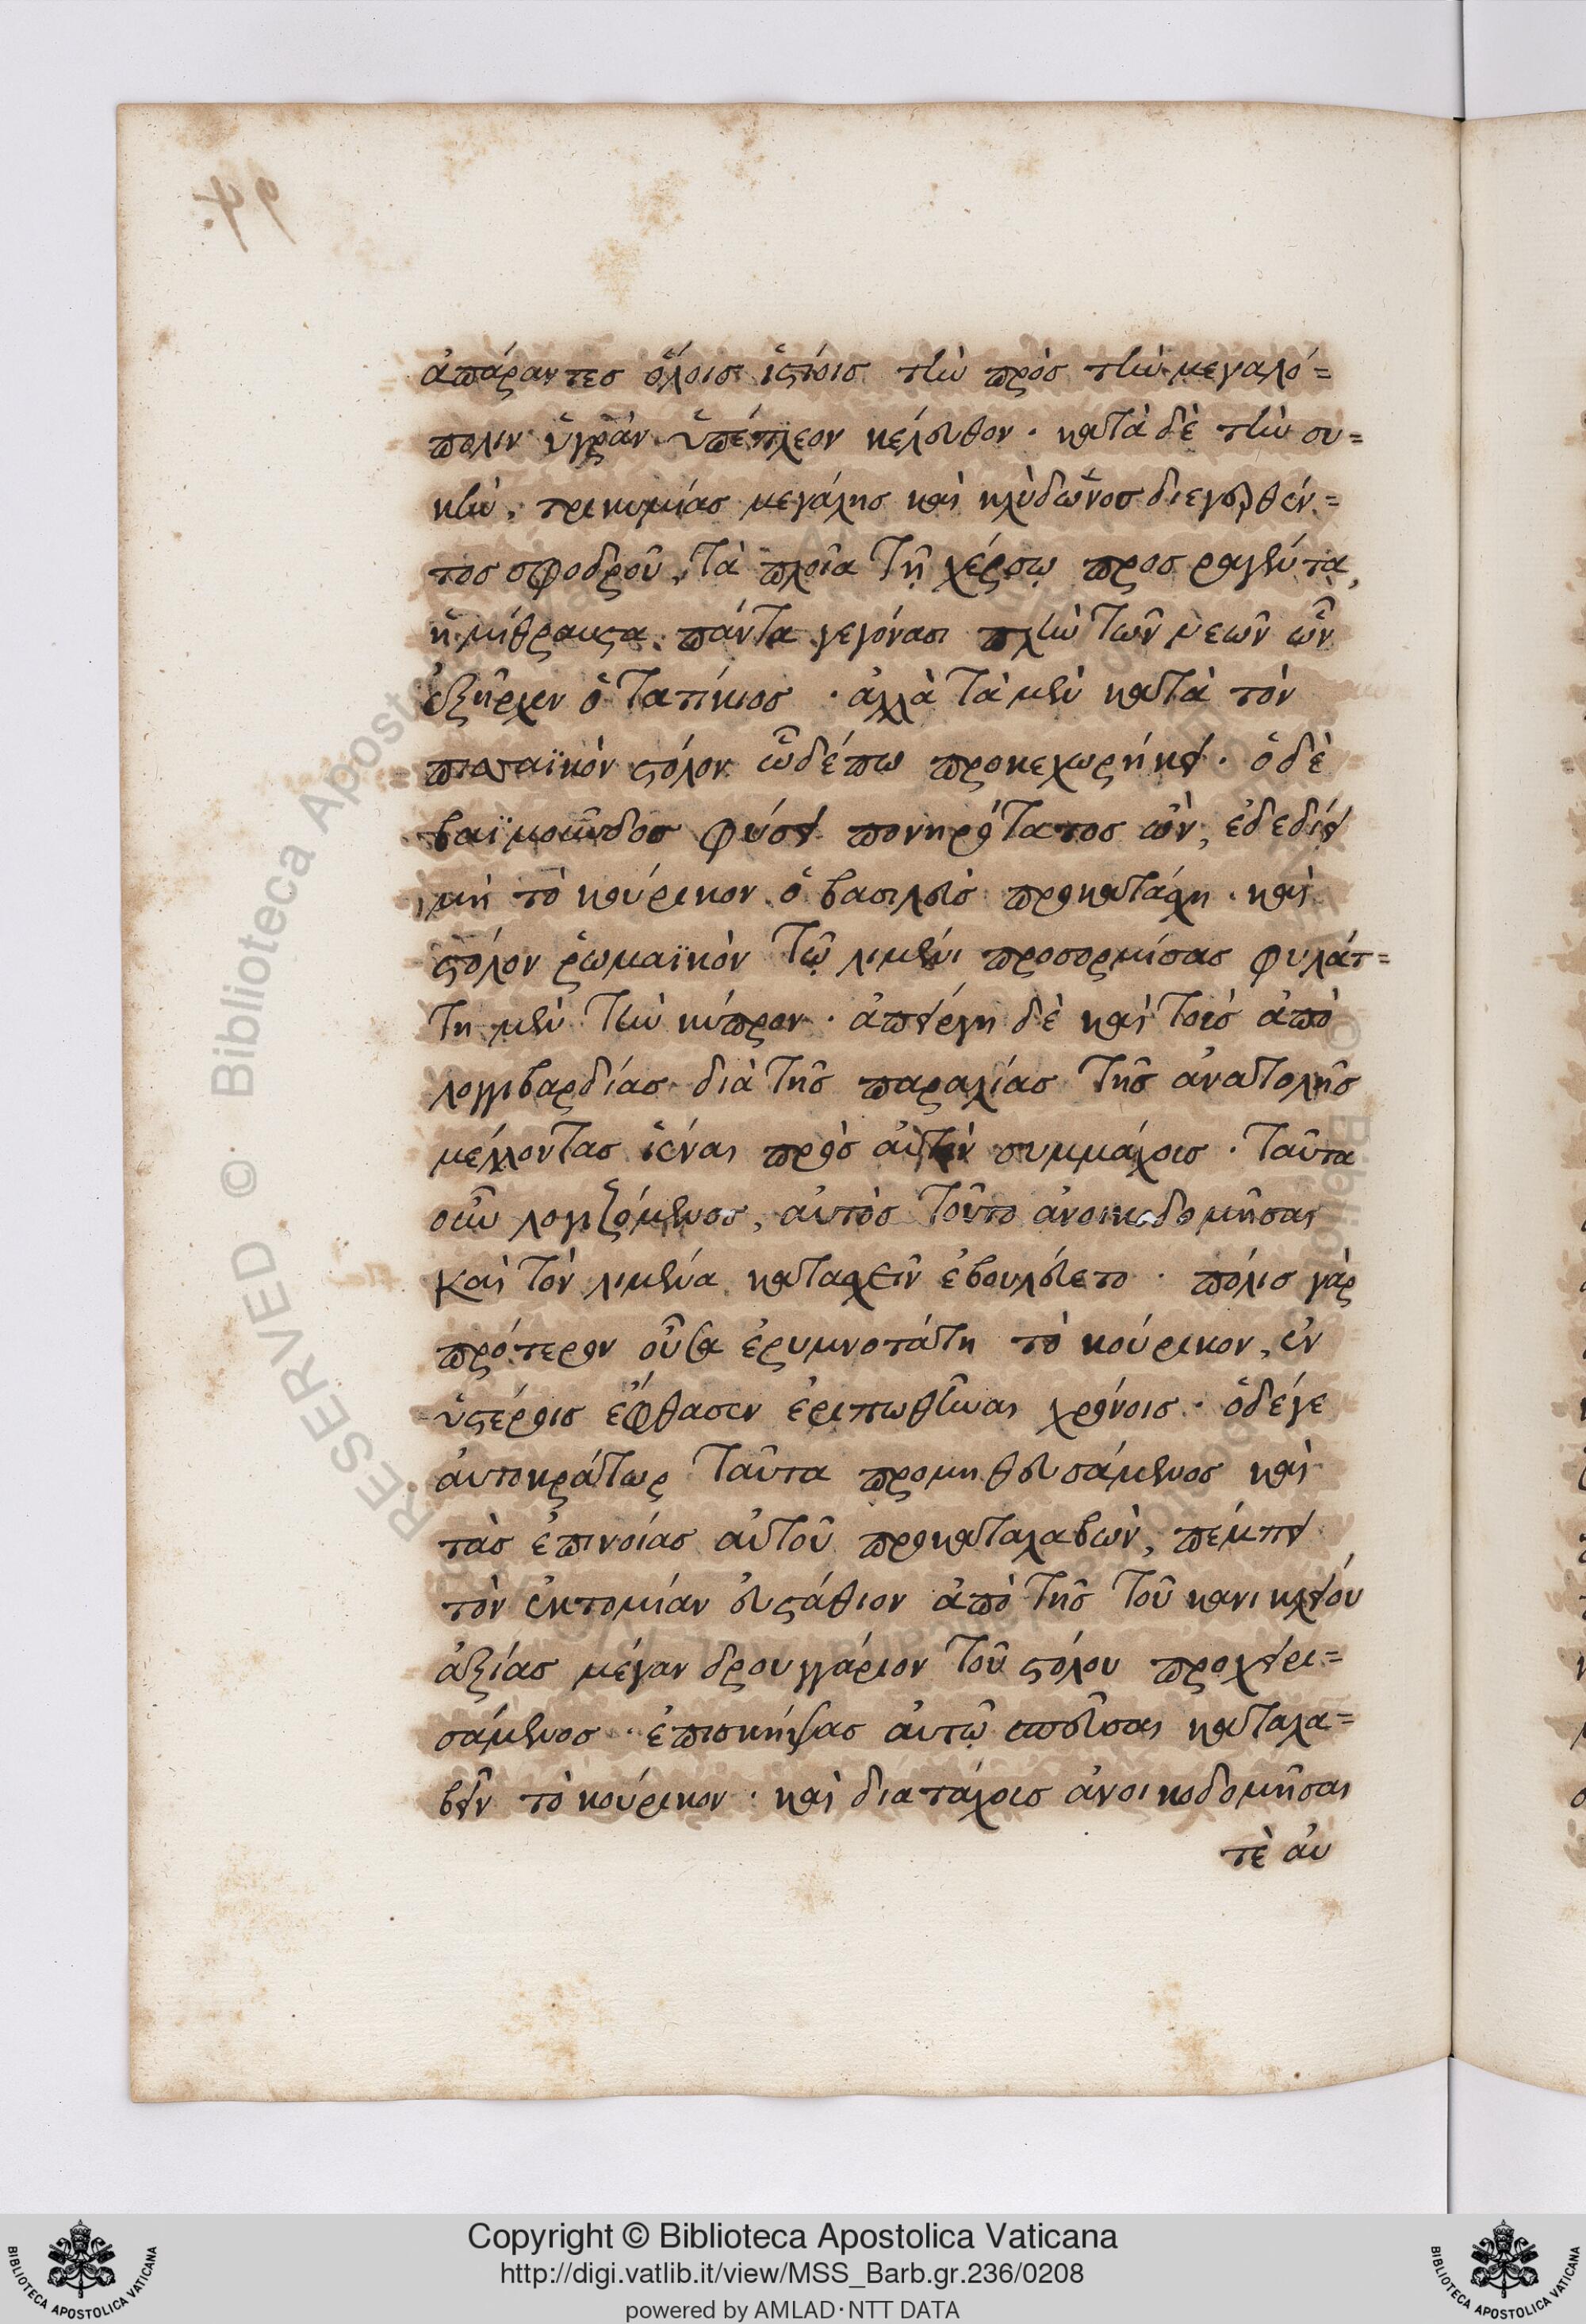 94.
ἀπάραντες ὅλοις ἱστοῖς τὴν πρὸς τὴν μεγαλό=
πολιν ὑγρὰν ὑπέπλεον κέλευθον · κατὰ δὲ τὴν συ=
κὴν, τρικυμίας μεγάλης καὶ κλύδωνος διεγερθέν=
τος σφοδροῦ, τὰ πλοῖα τῇ χέρσῳ προσραγέντα,
ἡμίθραυστα πάντα γεγόνασι πλὴν τῶν νεῶν ὧν
ἐξῆρχεν ὁ τατίκιος · ἀλλὰ τὰ μὲν κατὰ τὸν
πισσαϊκὸν στόλον ὧδέ πω προκεχωρήκει · ὁ δὲ
βαϊμοῦνδος φύσει πονηρότατος ὢν, ἐδεδίει
μὴ τὸ κούρικον ὁ βασιλεὺς προκατάσχῃ · καὶ
στόλον ῥωμαϊκὸν τῷ λιμένι προσορμίσας φυλάτ=
τῃ μὲν τὴν κύπρον · ἀπείργῃ δὲ καὶ τοὺς ἀπὸ
λογγιβαρδίας διὰ τῆς παραλίας τῆς ἀνατολῆς
μέλλοντας ἰέναι πρὸς αὐτὸν συμμάχους · ταῦτα
οὖν λογιζόμενος, αὐτὸς τοῦτο ἀνοικοδομῆσαι
καὶ τὸν λιμένα κατασχεῖν ἐβουλεύετο · πόλις γὰρ
πρότερον οὖσα ἐρυμνοτάτη τὸ κούρικον, ἐν
ὑστέροις ἔφθασεν ἐριπωθῆναι χρόνοις · ὁ δέ γε
αὐτοκράτωρ ταῦτα προμηθευσάμενος καὶ
τὰς ἐπινοίας αὐτοῦ προκαταλαβὼν, πέμπει
τὸν ἐκτομίαν εὐστάθιον ἀπὸ τῆς τοῦ κανικλείου
ἀξίας μέγαν δρουγγάριον τοῦ στόλου προχειρι=
σάμενος · ἐπισκήψας αὐτῷ σπεῦσαι καταλα=
βεῖν τὸ κούρικον · καὶ διατάχους ἀνοικοδομῆσαι
τὲ αὐ
Copyright © Biblioteca Apostolica Vaticana
http://digi.vatlib.it/view/MSS_Barb.gr.236/0208
powered by AMLAD·NTT DATA